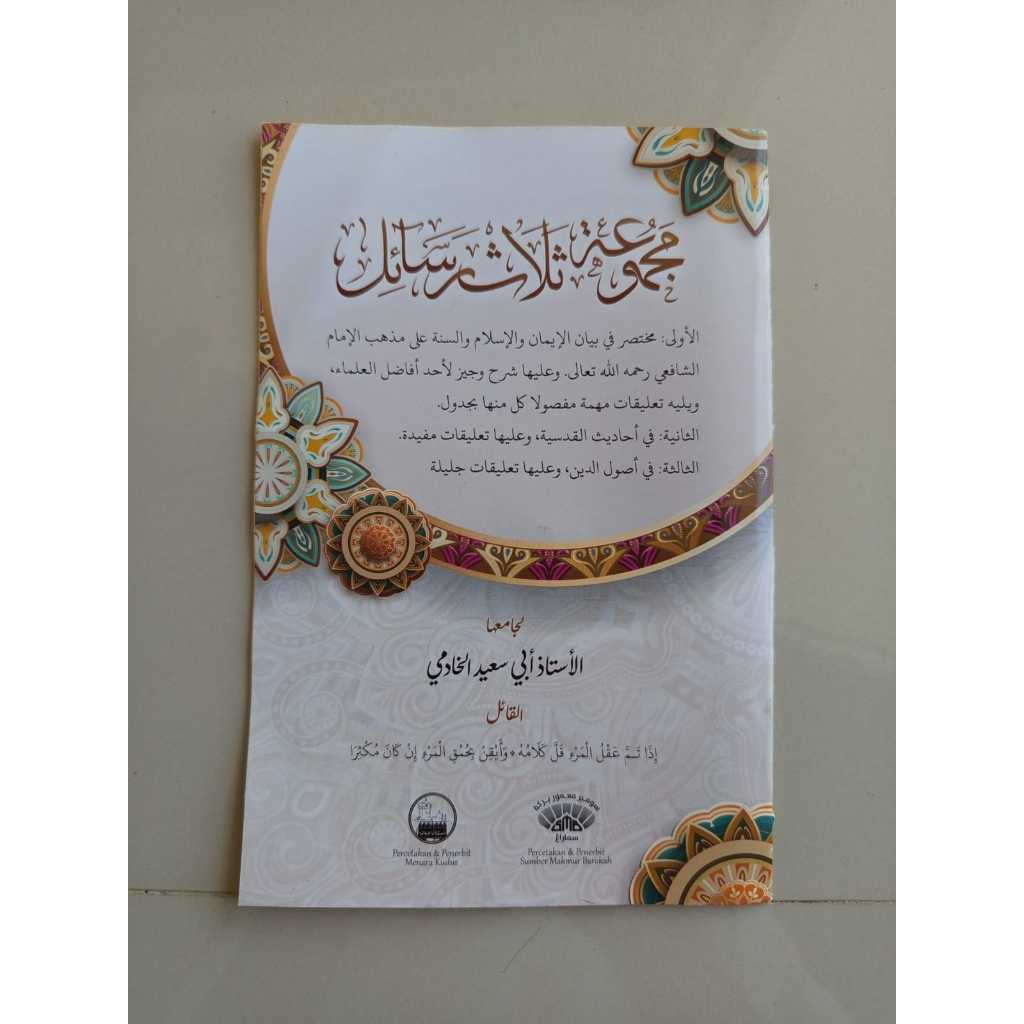 مجموعة ثلاث رسائل
الأولى: مختصر في بيان الإيمان والإسلام والسنة على مذهب الإمام
الشافعي رحمه الله تعالى. وعليها شرح وجيز لأحد أفاضل العلماء،
ويليه تعليقات مهمة مفصولا كل منها بجدول.
الثانية: في أحاديث القدسية، وعليها تعليقات مفيدة.
الثالثة: في أصول الدين، وعليها تعليقات جليلة
لجامعها
الأستاذ أبي سعيد الخادمي
القائل
إِذَا تَمَّ عَقْلُ الْمَرْءِ قَلَّ كَلَامُهُ * وَأَيْقِنْ بِحُمْقِ الْمَرْءِ إِنْ كَانَ مُكْثِرًا
سومبر معمور بركة
SMB
سماراغ
Percetakan & Penerbit
Sumber Makmur Barokah
Percetakan & Penerbit
Menara Kudus